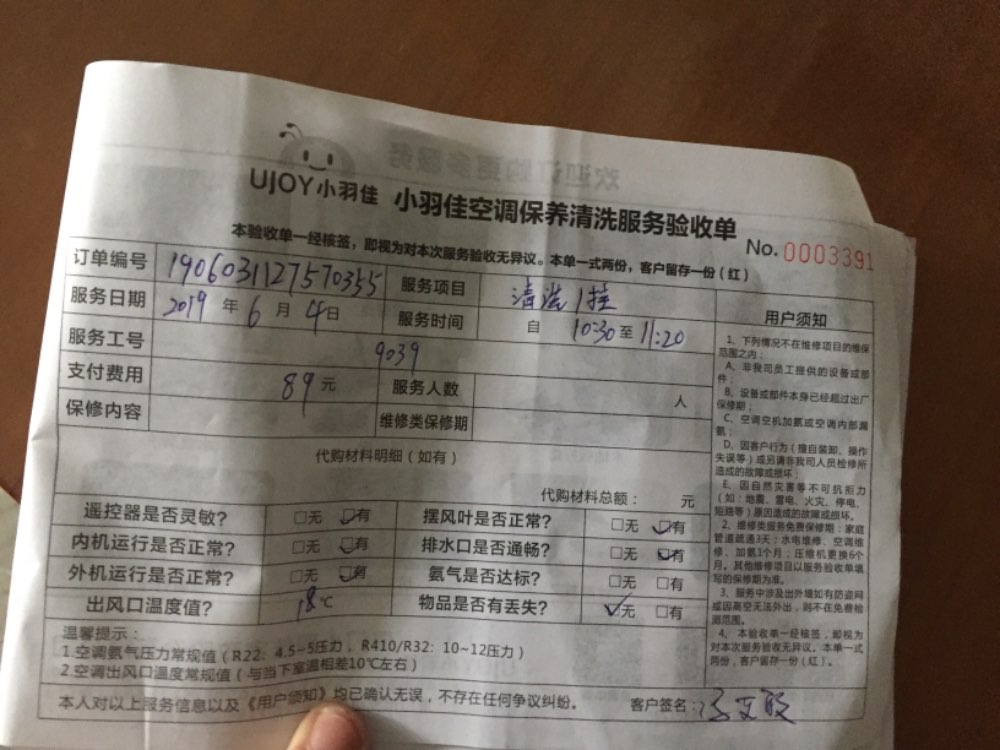 UJOY小羽佳 小羽佳空调保养清洗服务验收单
No. 0003391
本验收单一经核签，即视为对本次服务验收无异议。本单一式两份，客户留存一份（红）
订单编号 1906031127570355 服务项目 清洗1挂
服务日期 2019 年 6 月 4 日 服务时间 自 10:30 至 11:20
服务工号 9039
支付费用 89 元 服务人数 人
保修内容 维修类保修期
代购材料明细（如有）
代购材料总额： 元
遥控器是否灵敏？ □无 □有 摆风叶是否正常？ □无 □有
内机运行是否正常？ □无 □有 排水口是否通畅？ □无 □有
外机运行是否正常？ □无 □有 氨气是否达标？ □无 □有
出风口温度值？ 18 ℃ 物品是否有丢失？ ☑无 □有
温馨提示：
1.空调氨气压力常规值（R22：4.5~5压力，R410/R32：10~12压力）
2.空调出风口温度常规值（与当下室温相差10℃左右）
本人对以上服务信息以及《用户须知》均已确认无误，不存在任何争议纠纷。 客户签名：
用户须知
1、下列情况不在维修项目的维保
范围之内：
A、非我司员工提供的设备或部
件；
B、设备或部件本身已经超过出厂
保修期；
C、空调空机加氨或空调内部漏
氨；
D、因客户行为（擅自装卸、操作
失误等）或另请非我司人员检修所
造成的故障或损坏；
E、因自然灾害等不可抗拒力
（如：地震、雷电、火灾、停电、
短路等）原因造成的故障或损坏。
2、维修类服务免费保修期：家庭
管道疏通3天；水电维修、空调维
修、加氨1个月；压缩机更换6个
月。其他维修项目以服务验收单填
写的保修期为准。
3、服务中涉及出外墙如有防盗网
或因高空无法外出，则不在免费检
测范围。
4、本验收单一经核签，即视为
对本次服务验收无异议。本单一式
两份，客户留存一份（红）。